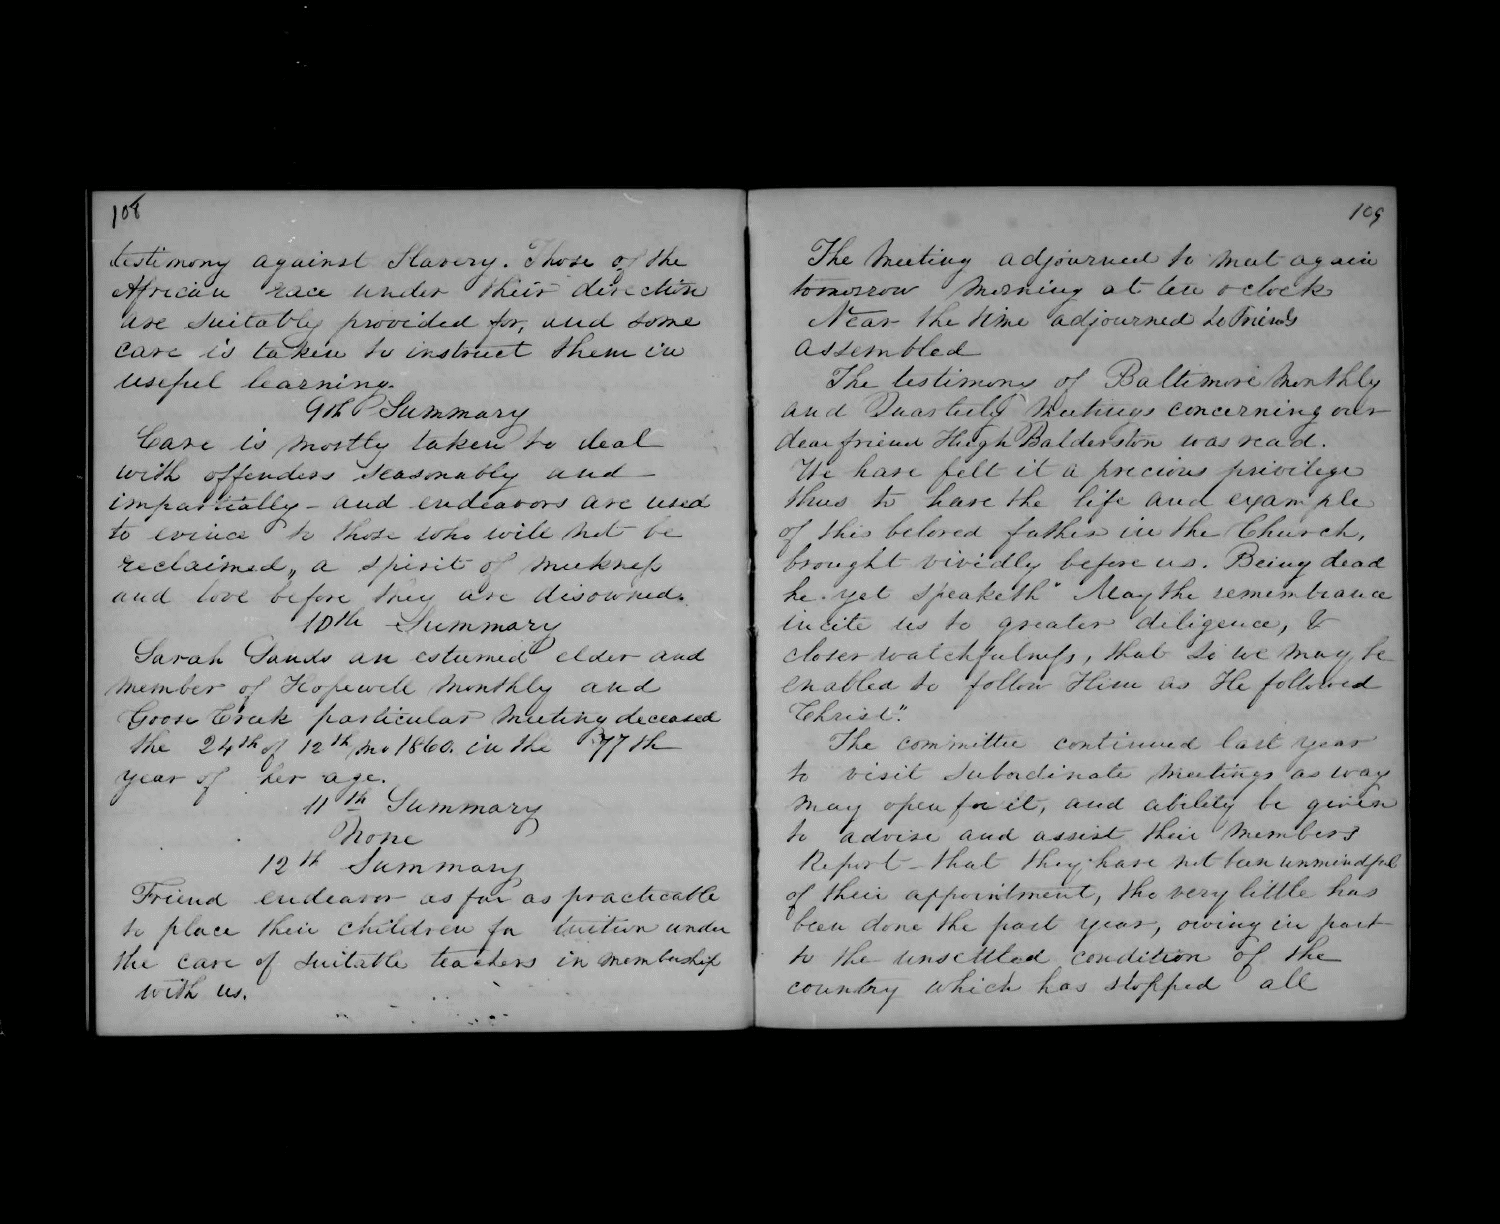 108
testimony against Slavery. Those of the
African race under their direction
are suitably provided for, and some
care is taken to instruct them in
useful learning.
9th Summary
Care is mostly taken to deal
with offenders seasonably and
impartially - and endeavors are used
to evince to those who will not be
reclaimed, a spirit of meekness
and love before they are disowned.
10th Summary
Sarah Sands an esteemed elder and
member of Hopewell Monthly and
Goose Creek particular Meeting deceased
the 24th of 12th mo 1860. in the 77th
year of her age.
11th Summary
None
12th Summary
Friend endeavor as far as practicable
to place their children for tuition under
the care of suitable teachers in membership
with us.
109
The Meeting adjourned to meet again
tomorrow morning at ten o clock
Near the time adjourned to Friends
assembled
The testimony of Baltimore Monthly
and Quarterly Meetings concerning our
dear friend Hugh Balderston was read.
We have felt it a precious privilege
thus to have the life and example
of this beloved father in the Church,
brought vividly before us. Being dead
he yet speaketh" May the remembrance
incite us to greater diligence, &
closer watchfulness, that so we may be
enabled to follow Him as He followed
Christ".
The committee continued last year
to visit subordinate meetings as way
may open for it, and ability be given
to advise and assist their members
Report - that they have not been unmindful
of their appointment, tho very little has
been done the past year, owing in part
to the unsettled condition of the
country which has stopped all